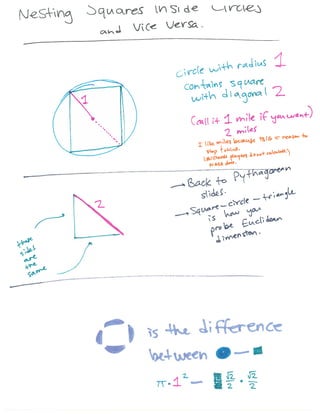 Nesting Squares Inside Circles
and Vice Versa.
1
circle with radius 1
contains square
with diagonal 2
(call it 1 mile if you want)
2 miles
I like miles because
reason to
→ Back to Pythagorean
slides.
→ Square-circle-triangle
is how you
probe Euclidean
dimension.
2
these
sides
are
the
same
is the difference
between —
π·1² — √2/2 · √2/2